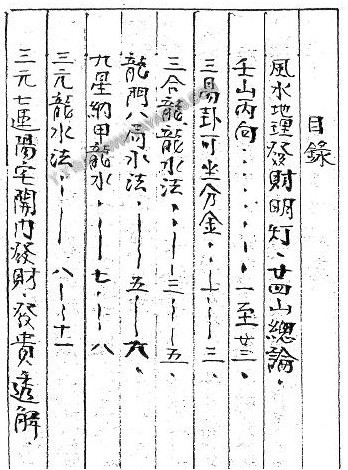 目錄
風水地理發財明灯、廿四山總論、
壬山丙向．．．．．．一至廿三、
三易卦可坐分金、．一～～三、
三合龍、龍水法、．．～三～～五、
龍門八局水法、．．～五～～六、
九星納甲龍水．～～七．～～八
三元龍水法、．．～～八～～十一
三元七運陽宅開門發財、發貴透解、